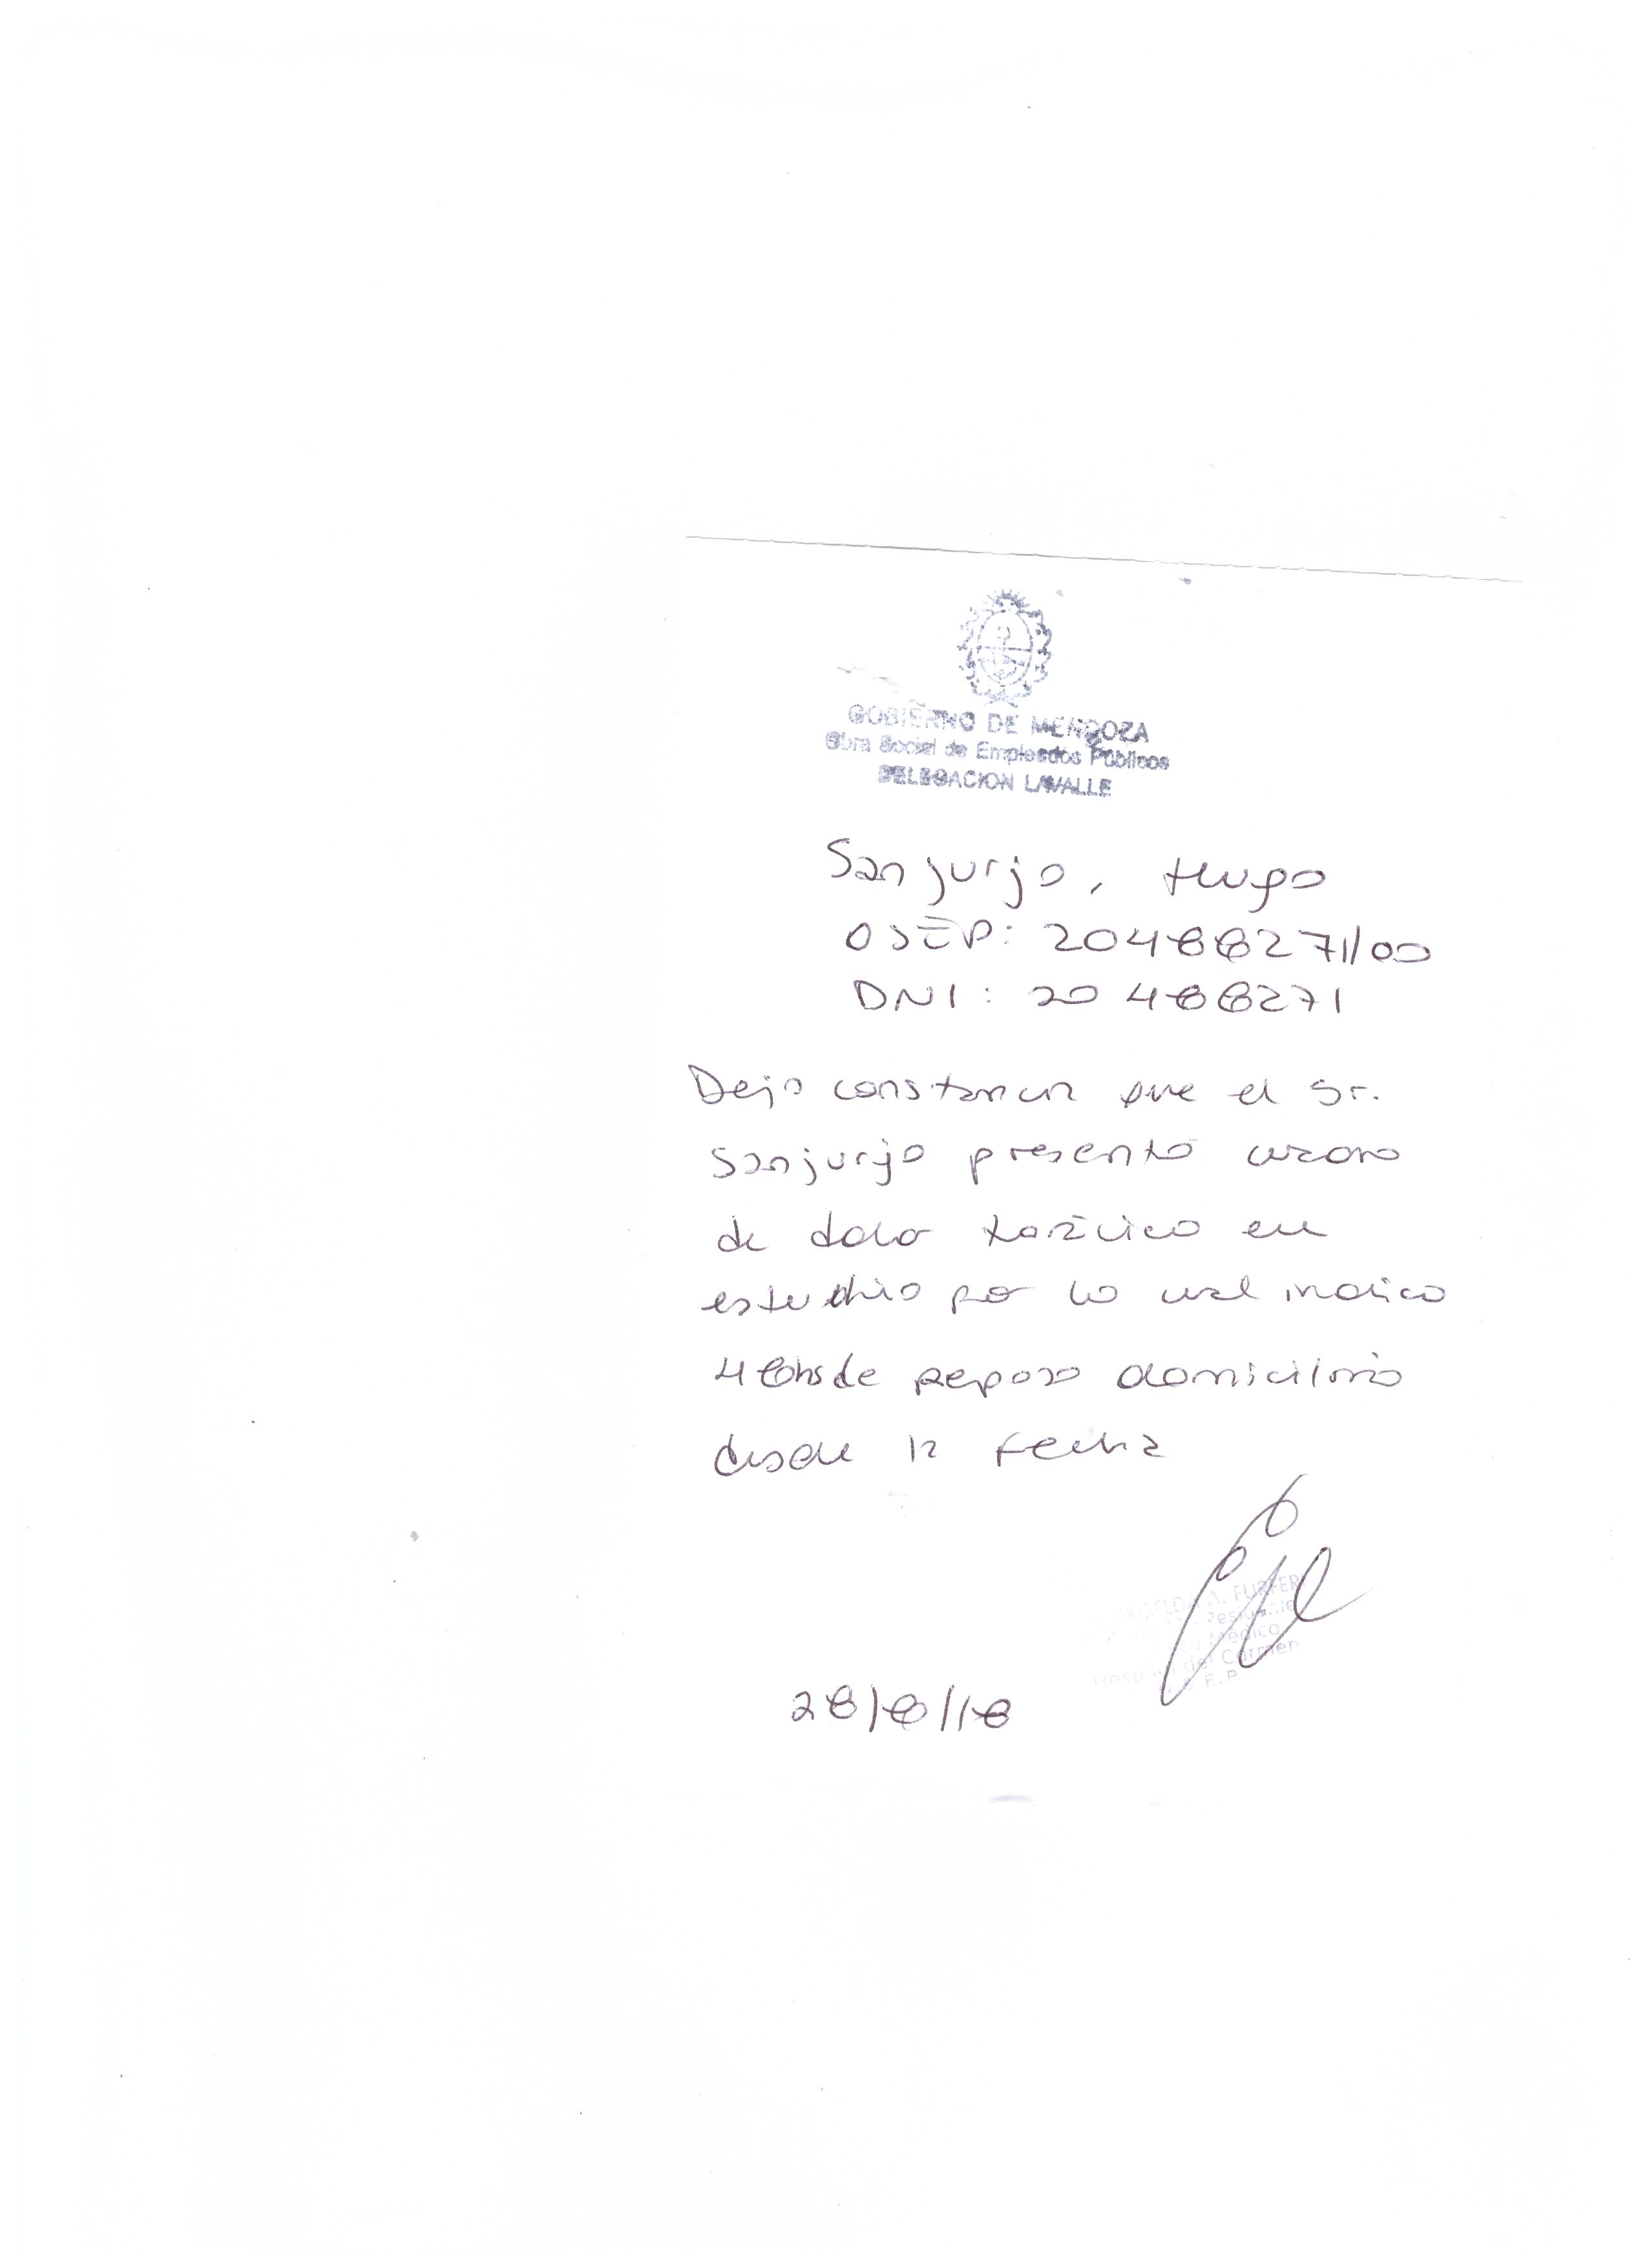 GOBIERNO DE MENDOZA
Obra Social de Empleados Públicos
DELEGACION LAVALLE
Sanjurjo, Hugo
OSEP: 20488271/00
DNI: 20488271
Dejo constancia que el Sr.
Sanjurjo presentó cuadro
de dolor torácico en
estudio por lo cual indico
48hs de reposo domicilirio
desde la fecha
FURFER
Residente
Médica
Hospital del Carmen
E.P
28/8/18